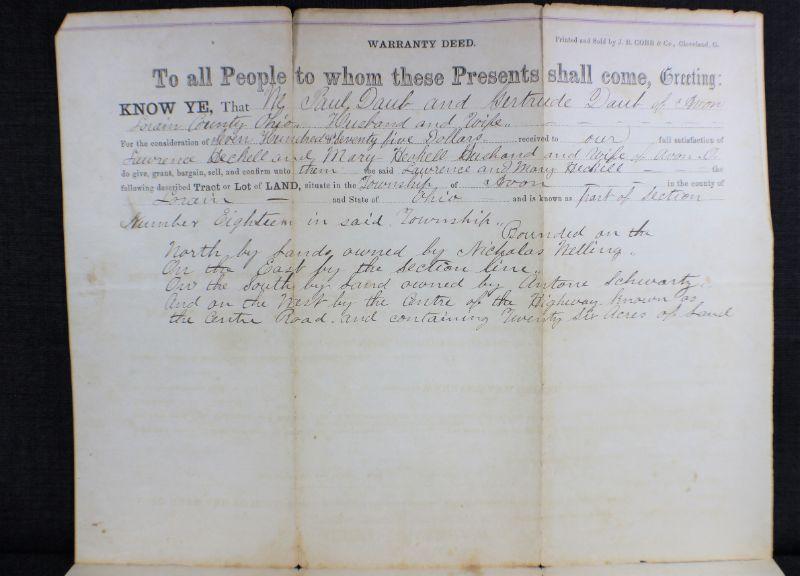 WARRANTY DEED.
Printed and Sold by J. B. COBB & Co., Cleveland, O.
To all People to whom these Presents shall come, Greeting:
KNOW YE, That We Paul Daub and Gertrude Daub of Avon
Lorain County Ohio. Husband and Wife.
For the consideration of Hundred & Seventy five Dollars received to our full satisfaction of
Lawrence Heckell and Mary Heckell Husband and Wife of Avon O.
do give, grant, bargain, sell, and confirm unto them the said Lawrence and Mary Heckell the
following described Tract or Lot of LAND, situate in the Township of Avon in the county of
Lorain and State of Ohio and is known as part of Section
Number Eighteen in said Township.
Bounded on the
North by Lands owned by Nicholas Nelling.
On the East by the Section line.
On the South by Land owned by Antone Schwartz.
And on the West by the Centre of the Highway known as
the Centre Road. and containing Twenty Six Acres of Land